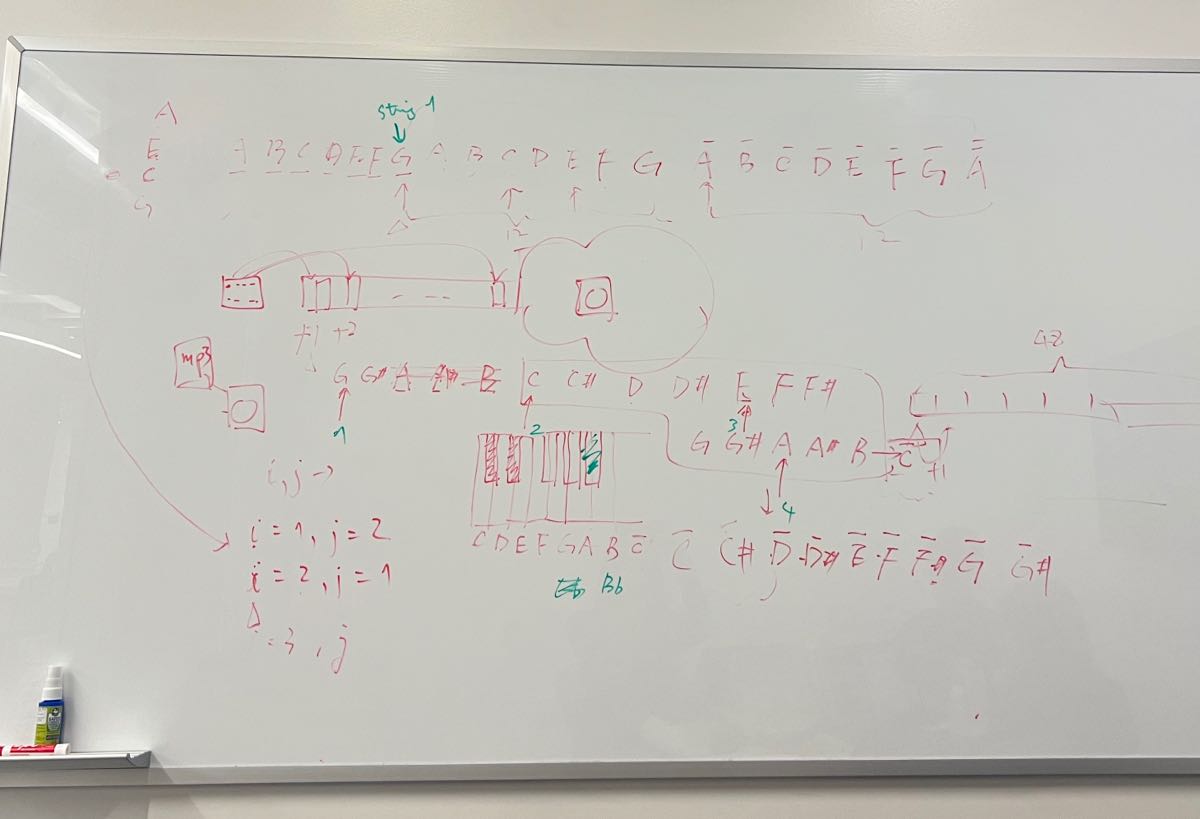 string 1
A
E
C
G
A B C D E F G A B C D E F G A̅ B̅ C̅ D̅ E̅ F̅ G̅ A̿
12 12
+1 +2
mp3
G G# A A# B C C# D D# E F F#
48
1 2 3
G G# A A# B C̅
+1
4
i, j →
i = 1, j = 2
i = 2, j = 1
= 3, j
C D E F G A B C̅
C̅ C̅# D̅ D̅# E̅ F̅ F̅# G̅ G̅#
Bb